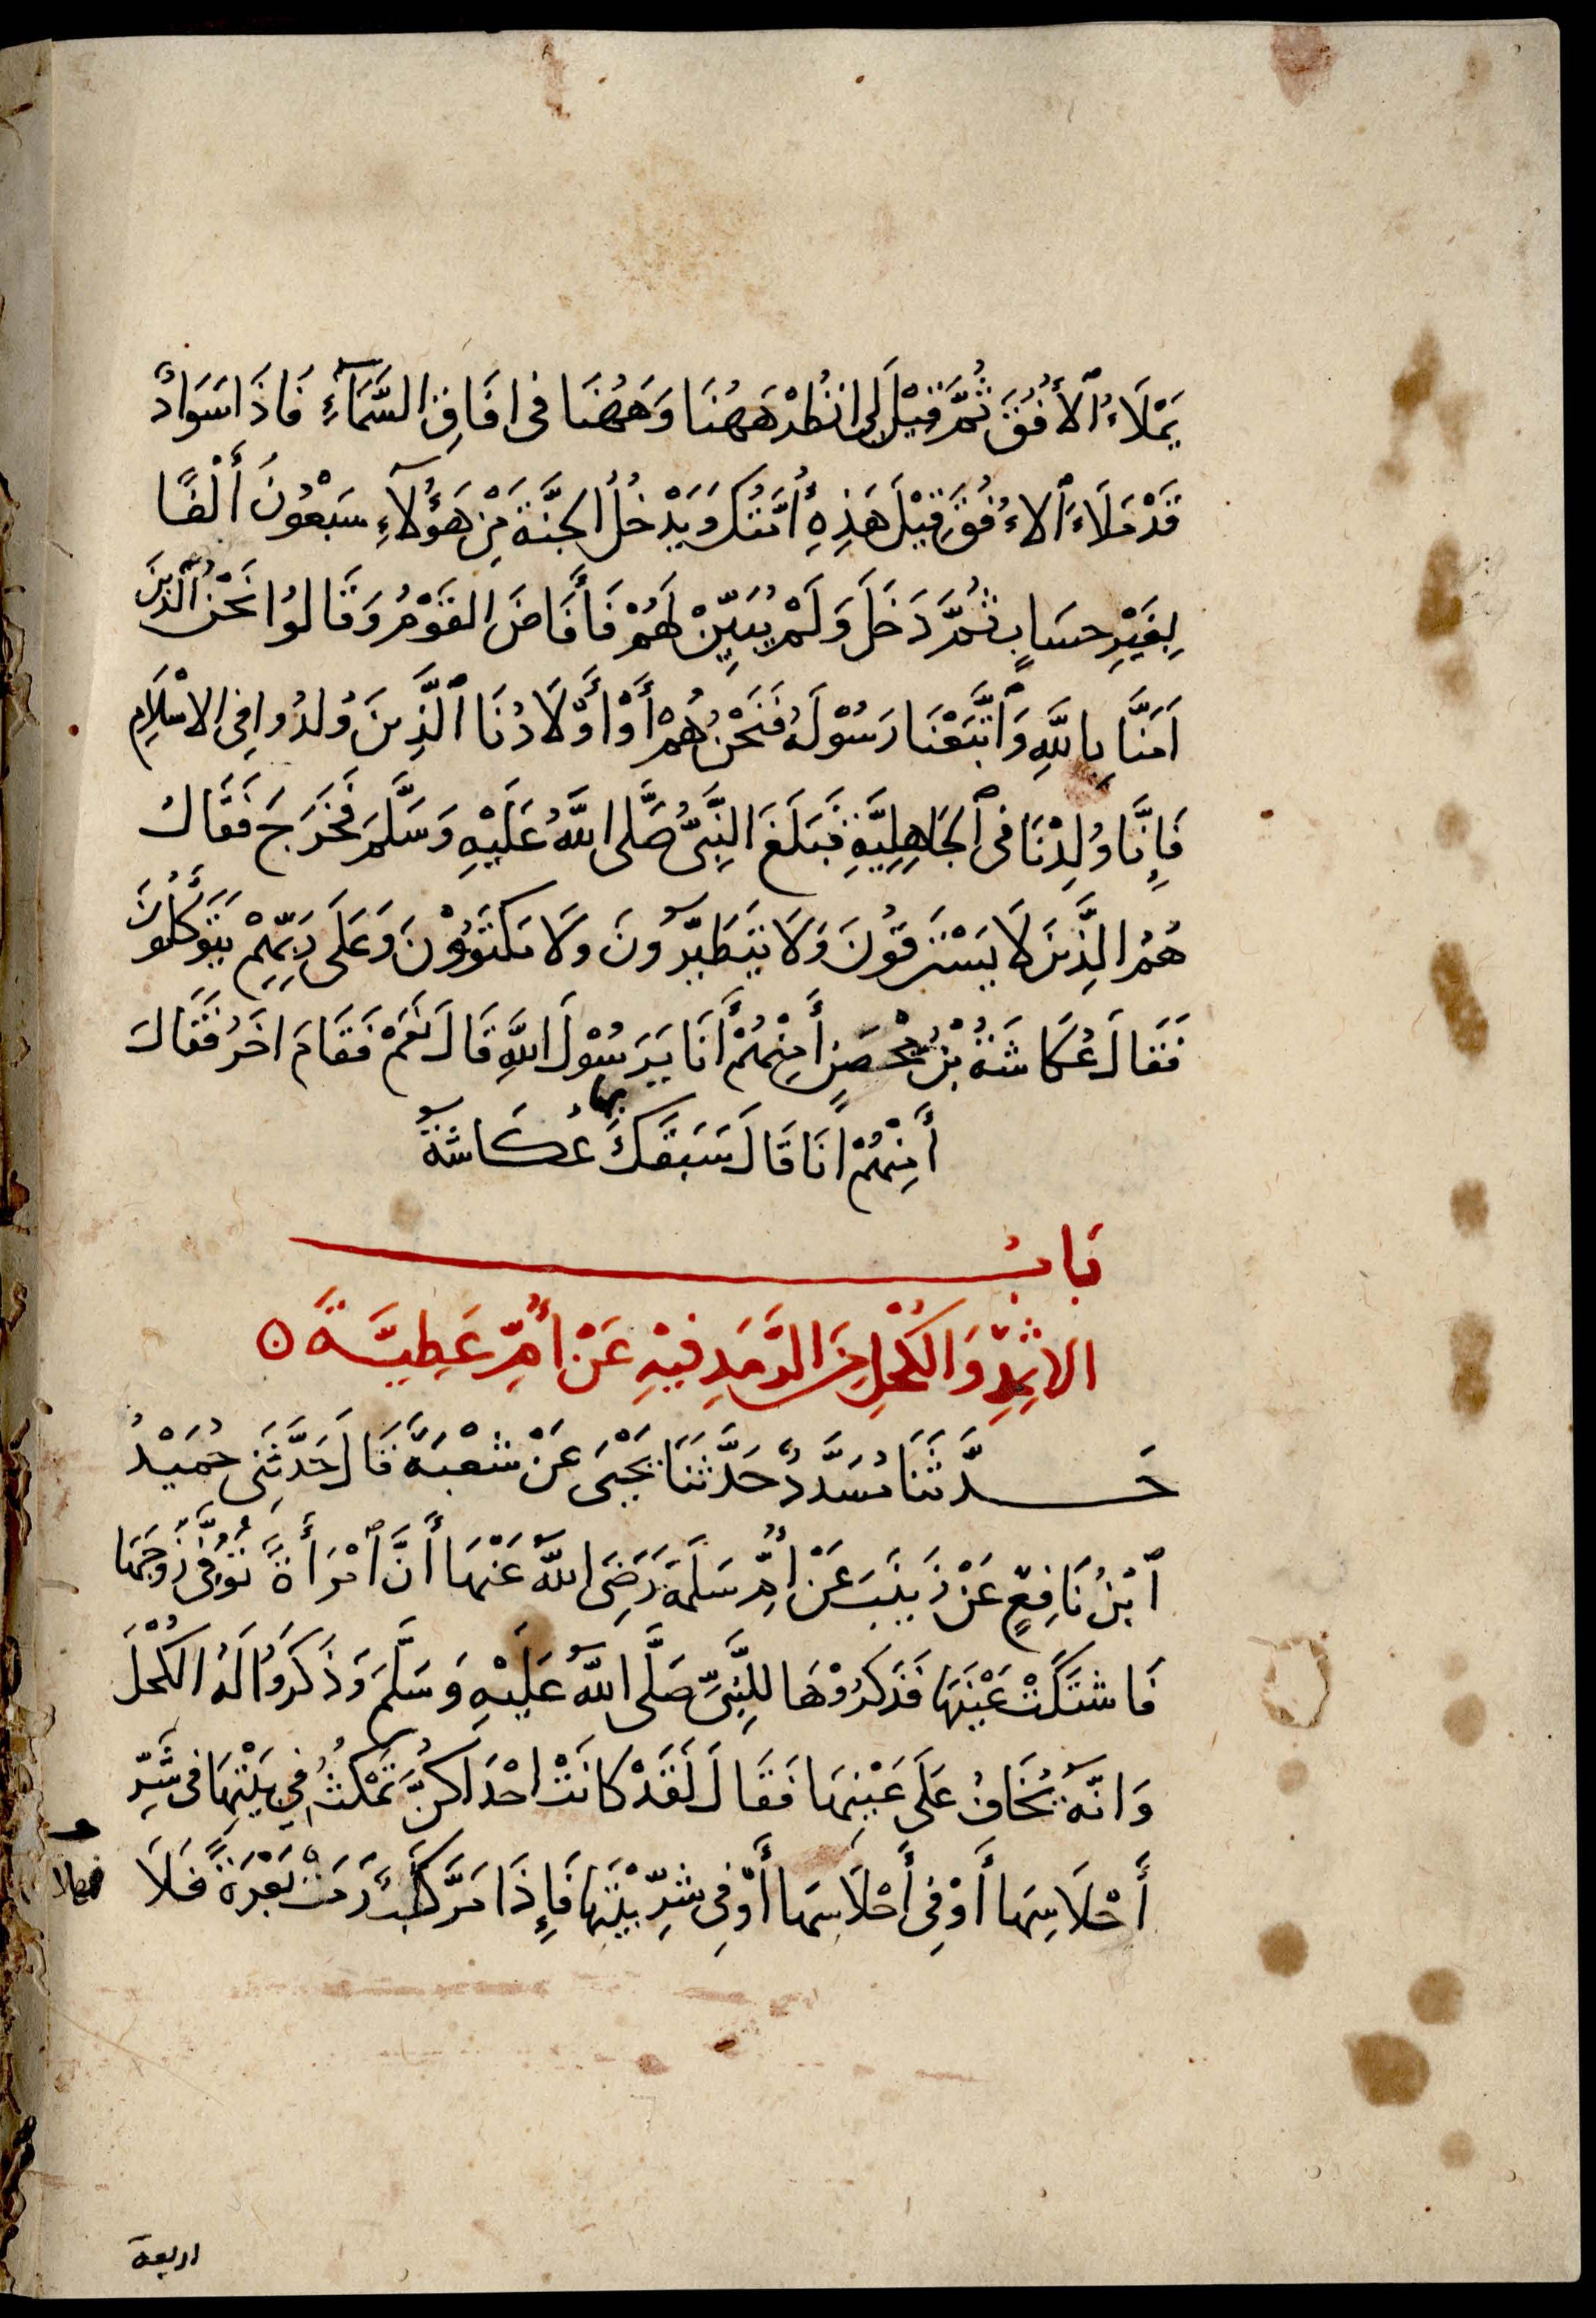 يَمْلَاءُ ٱلأُفُقَ ثُمَّ قِيْلَ لِي انْظُرْ هَهُنَا وَهَهُنَا فى افَاقِ السَّمَآءِ فَاذَا سَوَادٌ
قَدْ مَلَاءَ ٱلاُفُقَ قِيْلَ هَذِهِ أُمَّتُكَ وَيَدْخُلُ الجَنَّةَ مِنْ هَؤُلَآءِ سَبْعُونَ أَلْفًا
بِغَيْرِ حسَابٍ ثُمَّ دَخَلَ وَلَمْ يُبَيِّنْ لَهُمْ فَأَفَاضَ القَوْمُ وَقَالوُا نَحْنُ ٱلَّذِينَ
اَمَنَّا بِاللَّهِ وَٱتَّبَعْنَا رَسُوْلَهُ فَنَحْنُ هُمْ أَوْ أَوْلَادُنَا ٱلَّذِينَ وُلدُوا فِى الاسْلَامِ
فَإِنَّا وُلِدْنَا فى ٱلجَاهِلِيَّةِ فَبَلَغَ النَّبِىَّ صَلَّى اللَّهُ عَلَيْهِ وَسَلَّمَ فَخَرَجَ فَقَالَ
هُمُ الَّذِينَ لَا يَسْتَرقُونَ وَلَا يَتَطَيَّرُونَ وَلَا يَكتَوُوْنَ وَعَلَى رَبِّهِمْ يَتَوَكَّلُونَ
فَقَالَ عُكَاشَةُ بْنُ مِحْصَنٍ أَمِنْهُمْ أَنَا يَرَسُوْلَ اللَّهِ قَالَ نَعَمْ فَقَامَ اخَرُ فَقَالَ
أَمِنْهُمْ انَا قَالَ سَبَقَكَ بها عُكَاشَةُ
بَابُ
الاثْمِدِ وَالكُحْلِ مِنَ الرَّمَدِ فِيْهِ عَنْ أُمِّ عَطِيَّةَ
حَدَّثَنَا مُسَدَّدٌ حَدَّثَنَا يَحْيَى عَنْ شُعْبَةَ قَالَ حَدَّثَنِى حُمَيْدُ
ٱبْنُ نَافِعٍ عَنْ زَيْنَبَ عَنْ أُمِّ سَلَمَةَ رَضِىَ اللَّهُ عَنْهَا أَنَّ ٱمْرَأَةً تُوُفِّىَ زَوْجُهَا
فَاشتَكَتْ عَيْنَهَا فَذَكَرُوْهَا لِلنَّبِىِّ صَلَّى اللَّهُ عَلَيْهِ وَسَلَّمَ وَذَكَرَوُا لَهُ الكُحْلَ
وَانَّهُ يُخَافُ عَلَى عَيْنِهَا فَقَالَ لَقَدْ كَانَتْ احْدَاكُنَّ تَمْكُثُ فِي بَيْتِهَا فى شَرِّ
أَحْلَاسِهَا أَوْ فِى أَحْلَاسِهَا أَوْ فِى شَرِّ بَيْتِهَا فَإِذَا مَرَّ كَلْبٌ رَمَتْ بَعْرَةً فَلَا
اربعة